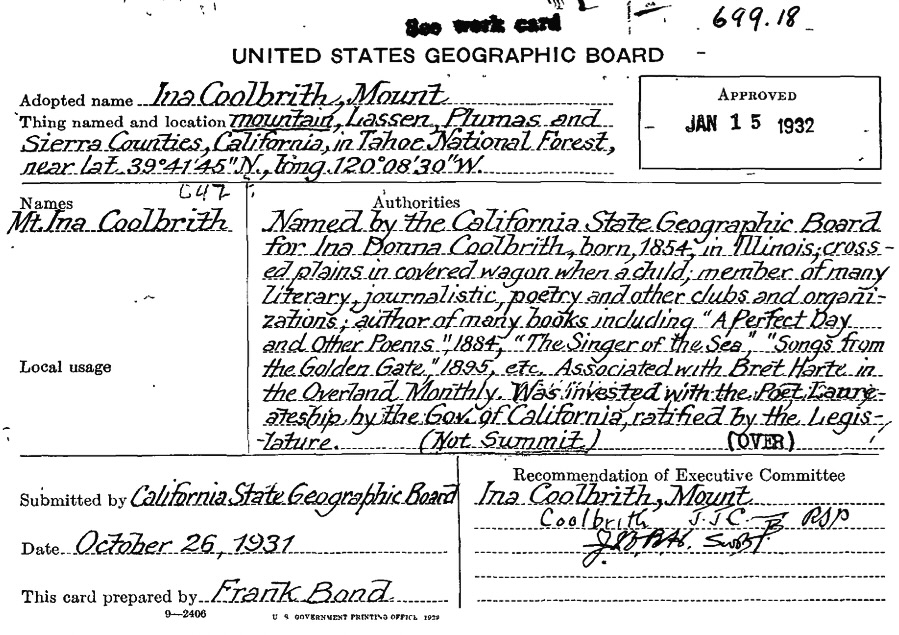 See work card
699.18
UNITED STATES GEOGRAPHIC BOARD
Adopted name Ina Coolbrith, Mount
Thing named and location mountain, Lassen, Plumas and
Sierra Counties, California, in Tahoe National Forest,
near lat. 39°41'45"N., long. 120°08'30"W.
APPROVED
JAN 15 1932
Names
Mt. Ina Coolbrith
Local usage
Authorities
Named by the California State Geographic Board
for Ina Donna Coolbrith, born, 1854, in Illinois; cross-
ed plains in covered wagon when a child; member of many
literary, journalistic, poetry and other clubs and organi-
zations; author of many books including "A Perfect Day
and Other Poems", 1884, "The Singer of the Sea," "Songs from
the Golden Gate," 1895, etc. Associated with Bret Harte in
the Overland Monthly. Was invested with the Poet Laure-
ateship by the Gov. of California, ratified by the Legis-
-lature. (Not Summit) (OVER)
Submitted by California State Geographic Board
Date October 26, 1931
This card prepared by Frank Bond
9—2406 U. S. GOVERNMENT PRINTING OFFICE 1929
Recommendation of Executive Committee
Ina Coolbrith, Mount
Coolbrith JJC RSP